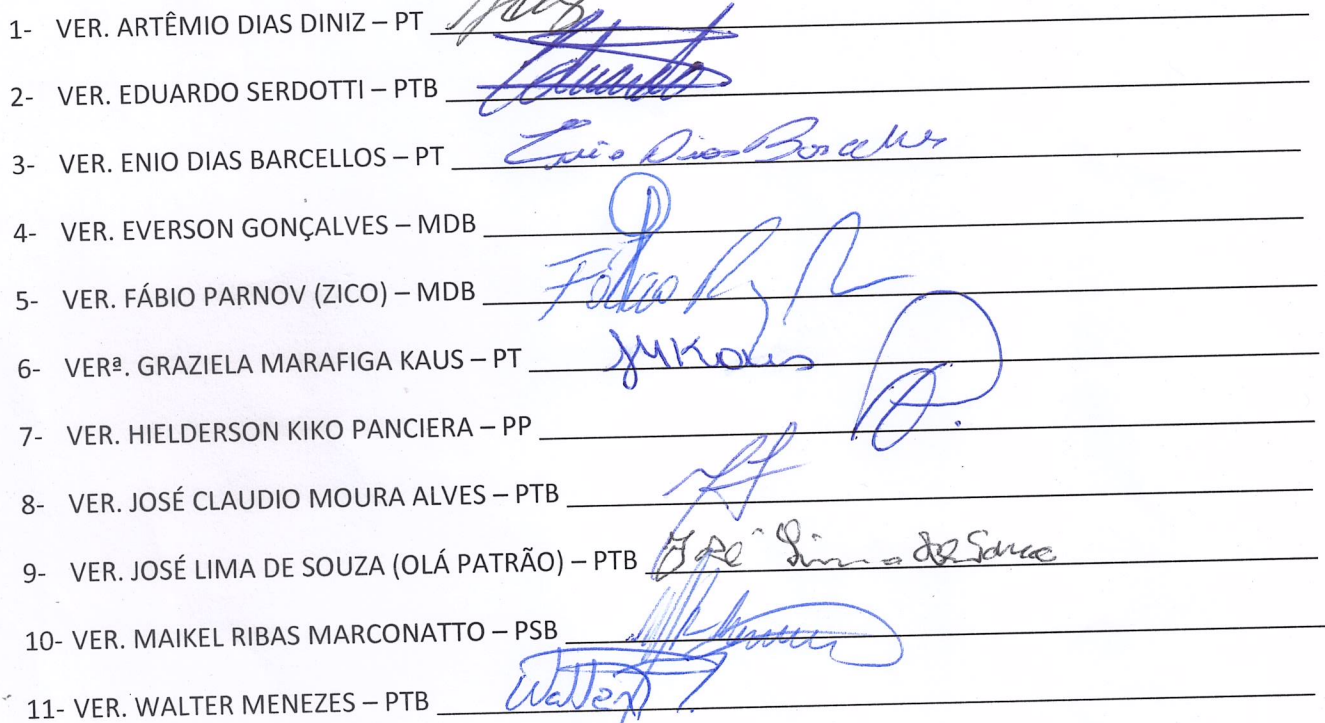 1- VER. ARTÊMIO DIAS DINIZ – PT
2- VER. EDUARDO SERDOTTI – PTB Eduardo
3- VER. ENIO DIAS BARCELLOS – PT Enio Dias Barcellos
4- VER. EVERSON GONÇALVES – MDB
5- VER. FÁBIO PARNOV (ZICO) – MDB Fábio
6- VERª. GRAZIELA MARAFIGA KAUS – PT GMKaus
7- VER. HIELDERSON KIKO PANCIERA – PP
8- VER. JOSÉ CLAUDIO MOURA ALVES – PTB
9- VER. JOSÉ LIMA DE SOUZA (OLÁ PATRÃO) – PTB José Lima de Souza
10- VER. MAIKEL RIBAS MARCONATTO – PSB
11- VER. WALTER MENEZES – PTB Walter